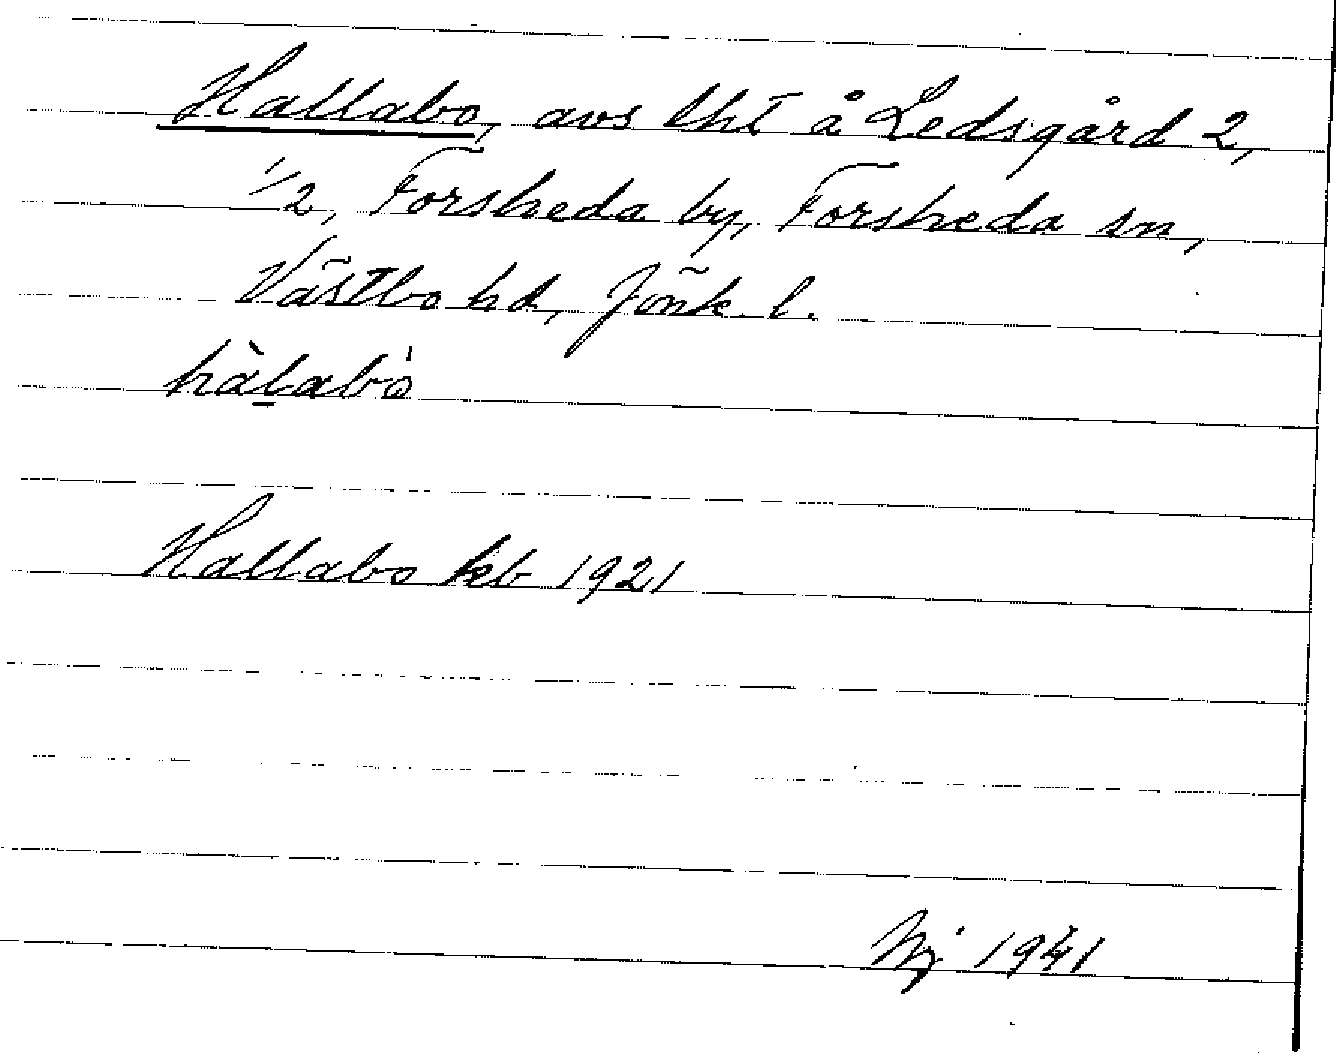 Hallabo, avs lht å Ledsgård 2,
1/2, Forsheda by, Forsheda sn,
Västbo hd, Jönk. l.
hàlabò
Hallabo kb 1921
1941